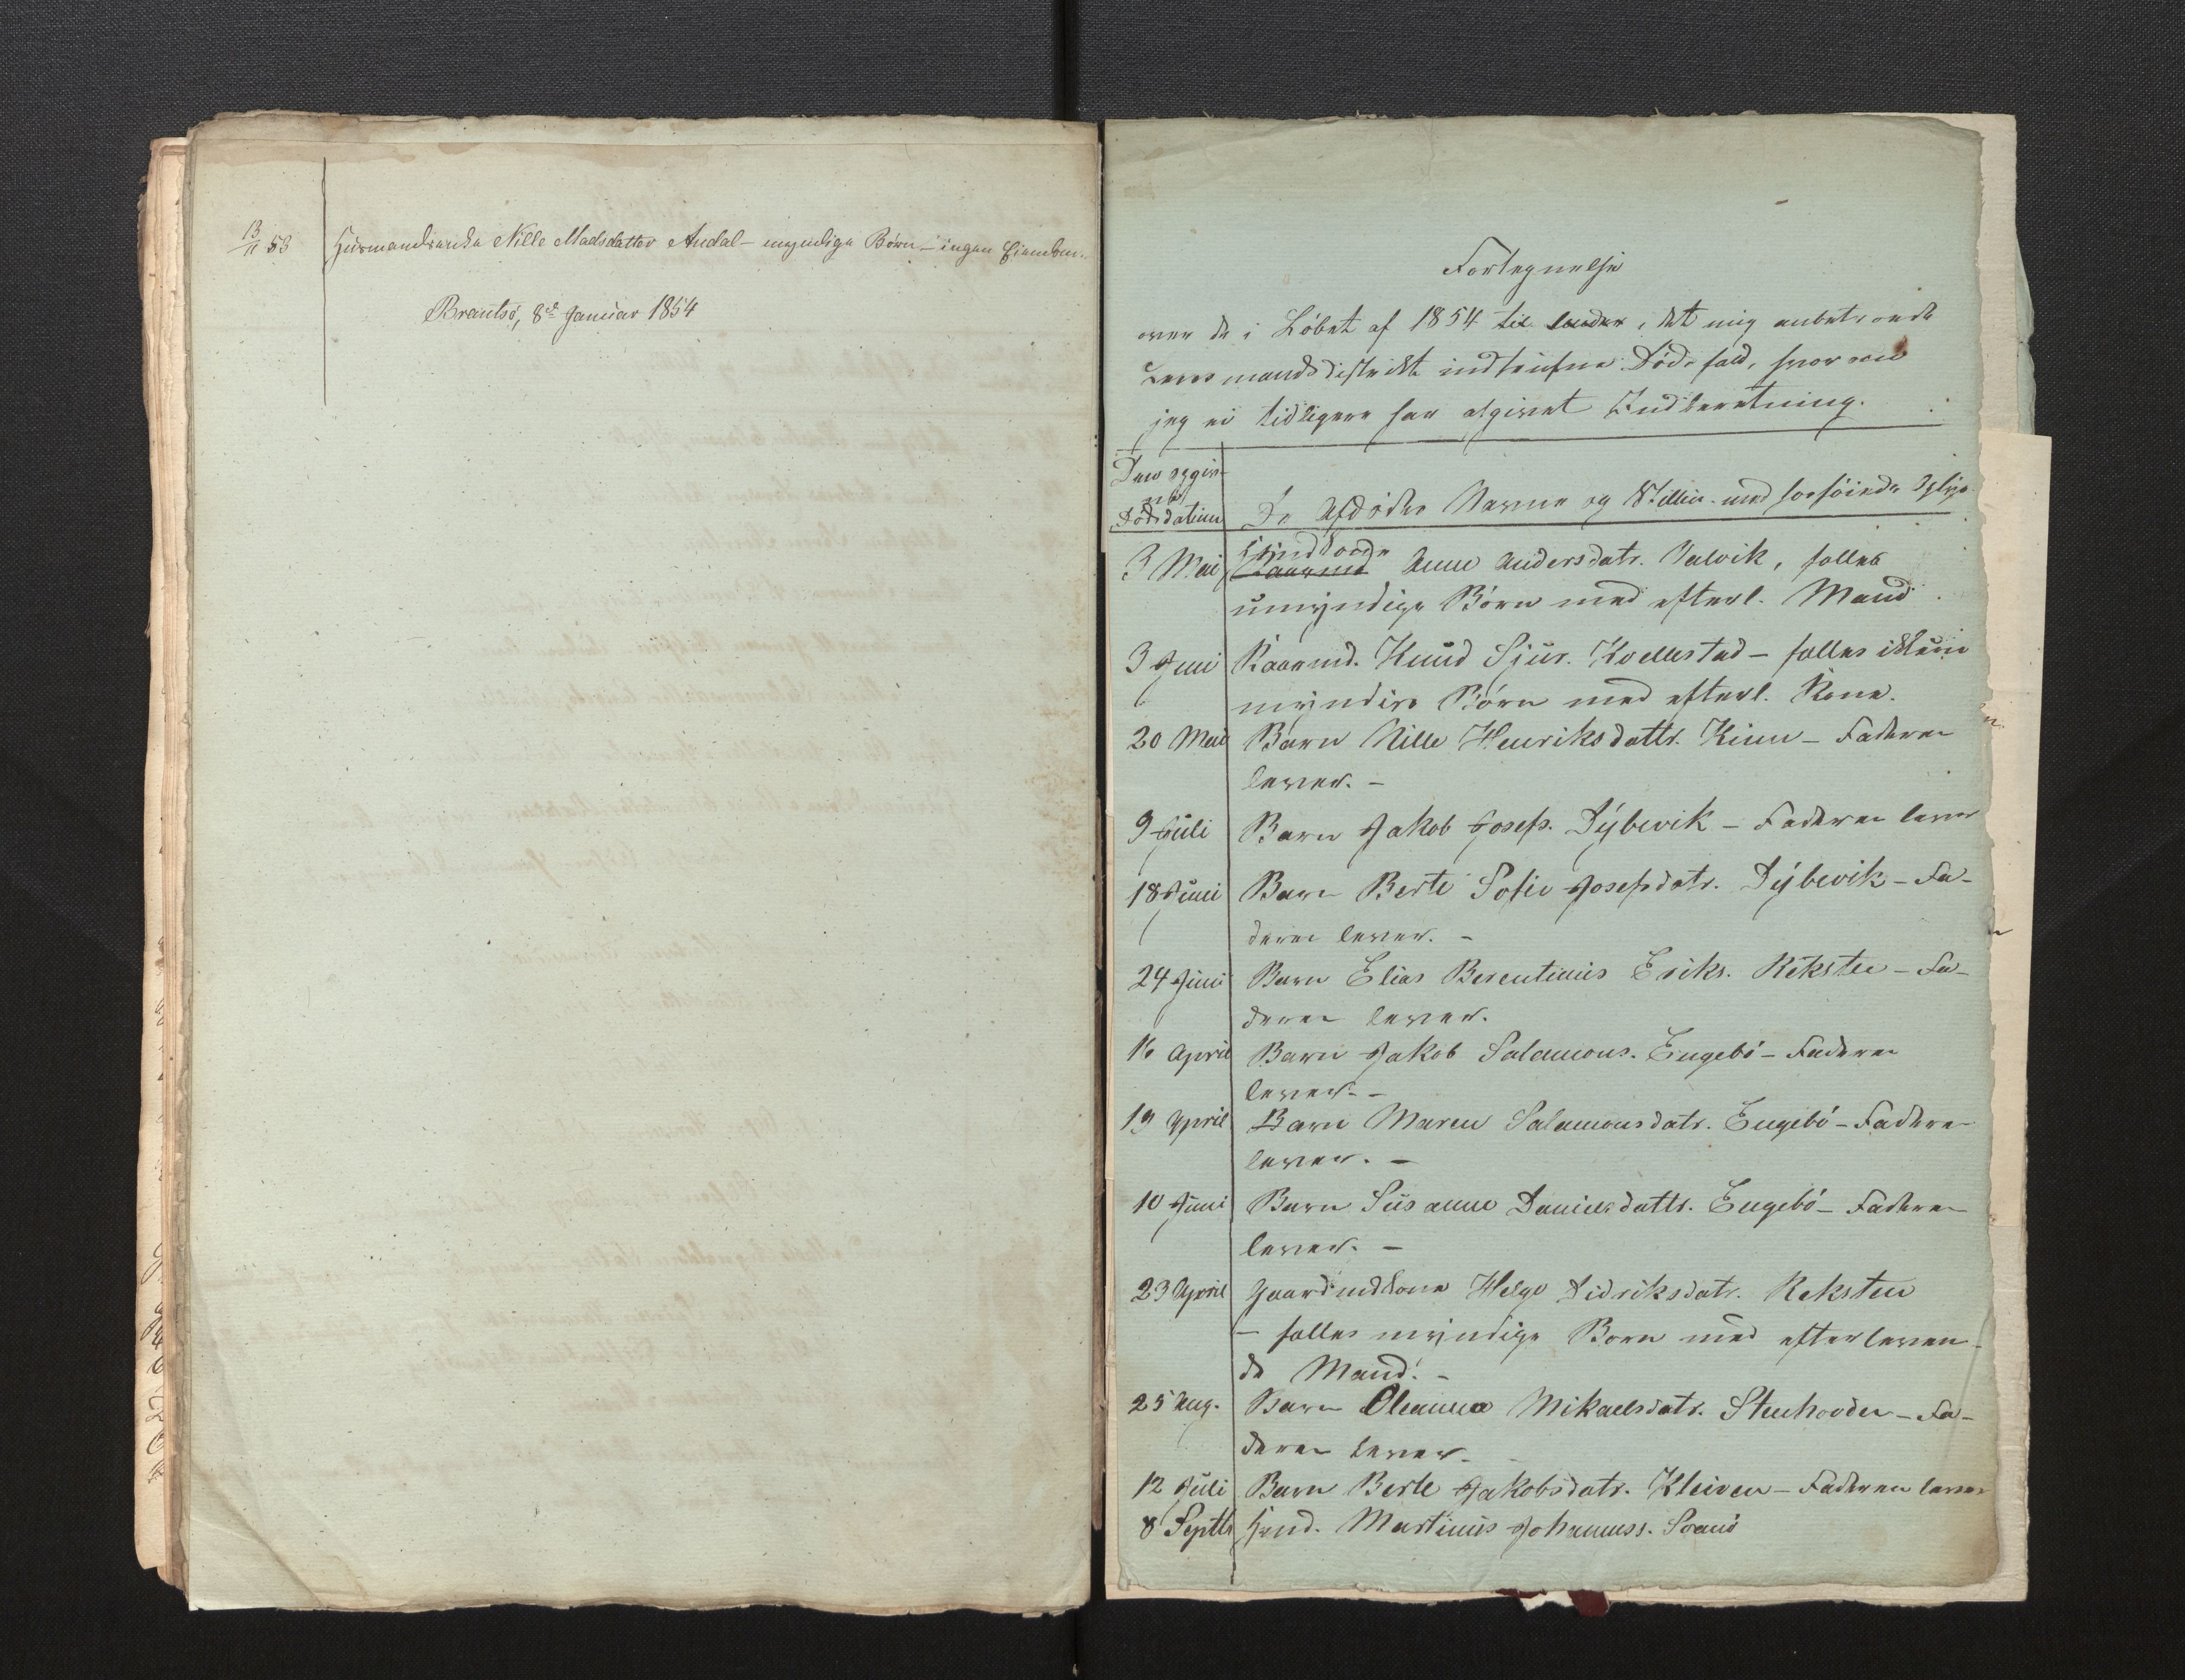 13/11 53 Huusmandsenke Nille Madsdatter Andal - myndige Børn - ingen Eiendom.
Brantsø, 8de Januar 1854
Fortegnelse
over de i Løbet af 1854 til i det mig anbetroede
Lensmandsdistrikt indtrufne Dødsfald, hvorom
jeg ei tidligere har afgivet Indberetning.
Den opgiv-
ne
Dødsdatum
De Afdødes Navne og Stilling med forføiede Oplys.
3 Mai Kaarmd Anne Andersdatr. Indvik, holles
umyndige Børn med efterl. Mand
3 Juni Kaarmd. Knud Sjur. Kvellestad - holles ikkun
myndige Børn med efterl. Kone.
20 Mai Barn Nille Henriksdattr. Kinn - Faderen
lever. -
9 Juli Barn Jakob Josefs. Dÿbevik - Faderen lever
18 Juni Barn Berte Sofie Josefsdatr. Dÿbevik - Fa-
deren lever. -
24 Juni Barn Elias Berentinus Eriks. Reksten - Fa-
deren lever.
16 April Barn Jakob Salamons. Engebø - Faderen
lever. -
19 April Barn Maren Salamonsdatr. Engebø - Faderen
lever. -
10 Juni Barn Susanne Danielsdattr. Engebø - Faderen
lever. -
23 April Gaardmdkone Helge Didriksdatr. Reksten
- holles myndige Børn med efterleven-
de Mand. -
25 Aug. Barn Oleanna Mikaelsdatr. Stenhovden - Fa-
deren lever. -
12 Juli Barn Berte Jakobsdatr. Kleiven - Faderen lever
8 Septbr Hmd. Martinus Johanness. Svanø